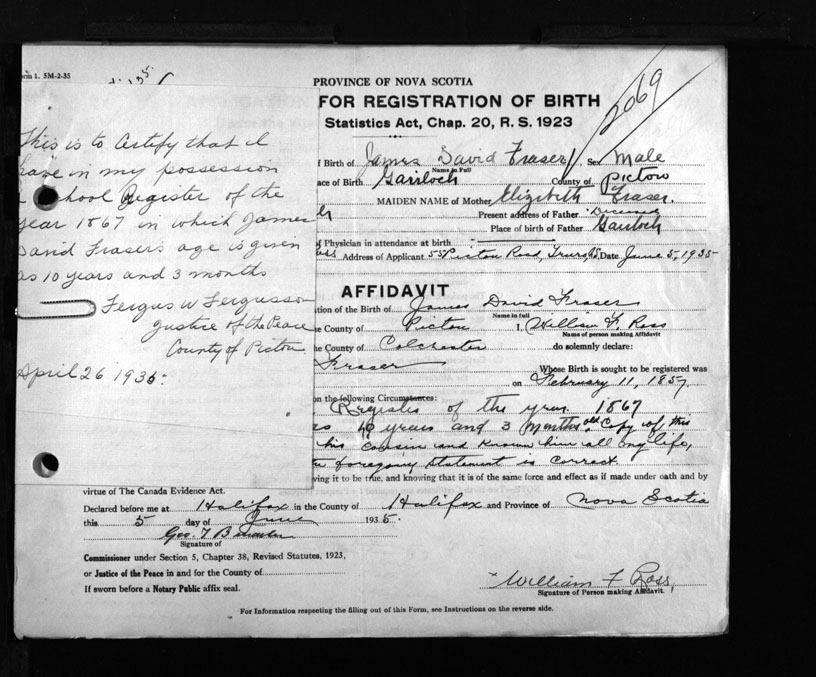 orm 1. 5M-2-35
This is to Certify that I
have in my possession
School Register of the
year 1867 in which James
David Fraser's age is given
as 10 years and 3 months
Fergus W Fergusson
Justice of the Peace
County of Pictou
April 26 1935.
PROVINCE OF NOVA SCOTIA
FOR REGISTRATION OF BIRTH
Statistics Act, Chap. 20, R. S. 1923
2069
of Birth of James David Fraser Sex Male
Name in Full
ace of Birth Gairloch County of Pictou
MAIDEN NAME of Mother Elizabeth Fraser.
Present address of Father Deceased
Place of birth of Father Gairloch
f Physician in attendance at birth
oss Address of Applicant 55 Pictou Road, Truro, NS. Date June 5, 1935
AFFIDAVIT
tion of the Birth of James David Fraser
Name in full
he County of Pictou I, William F. Ross
Name of person making Affidavit
he County of Colchester do solemnly declare:
Fraser Whose Birth is sought to be registered was
on February 11, 1857
on the following Circumstances:
Register of the year 1867
10 years and 3 months old Copy of this
his cousin and known him all my life,
foregoing statement is correct.
ving it to be true, and knowing that it is of the same force and effect as if made under oath and by
virtue of The Canada Evidence Act.
Declared before me at Halifax in the County of Halifax and Province of Nova Scotia
this 5 day of June 1935.
Geo. T
Signature of
Commissioner under Section 5, Chapter 38, Revised Statutes, 1923,
or Justice of the Peace in and for the County of
If sworn before a Notary Public affix seal.
William F Ross
Signature of Person making Affidavit.
For Information respecting the filling out of this Form, see Instructions on the reverse side.